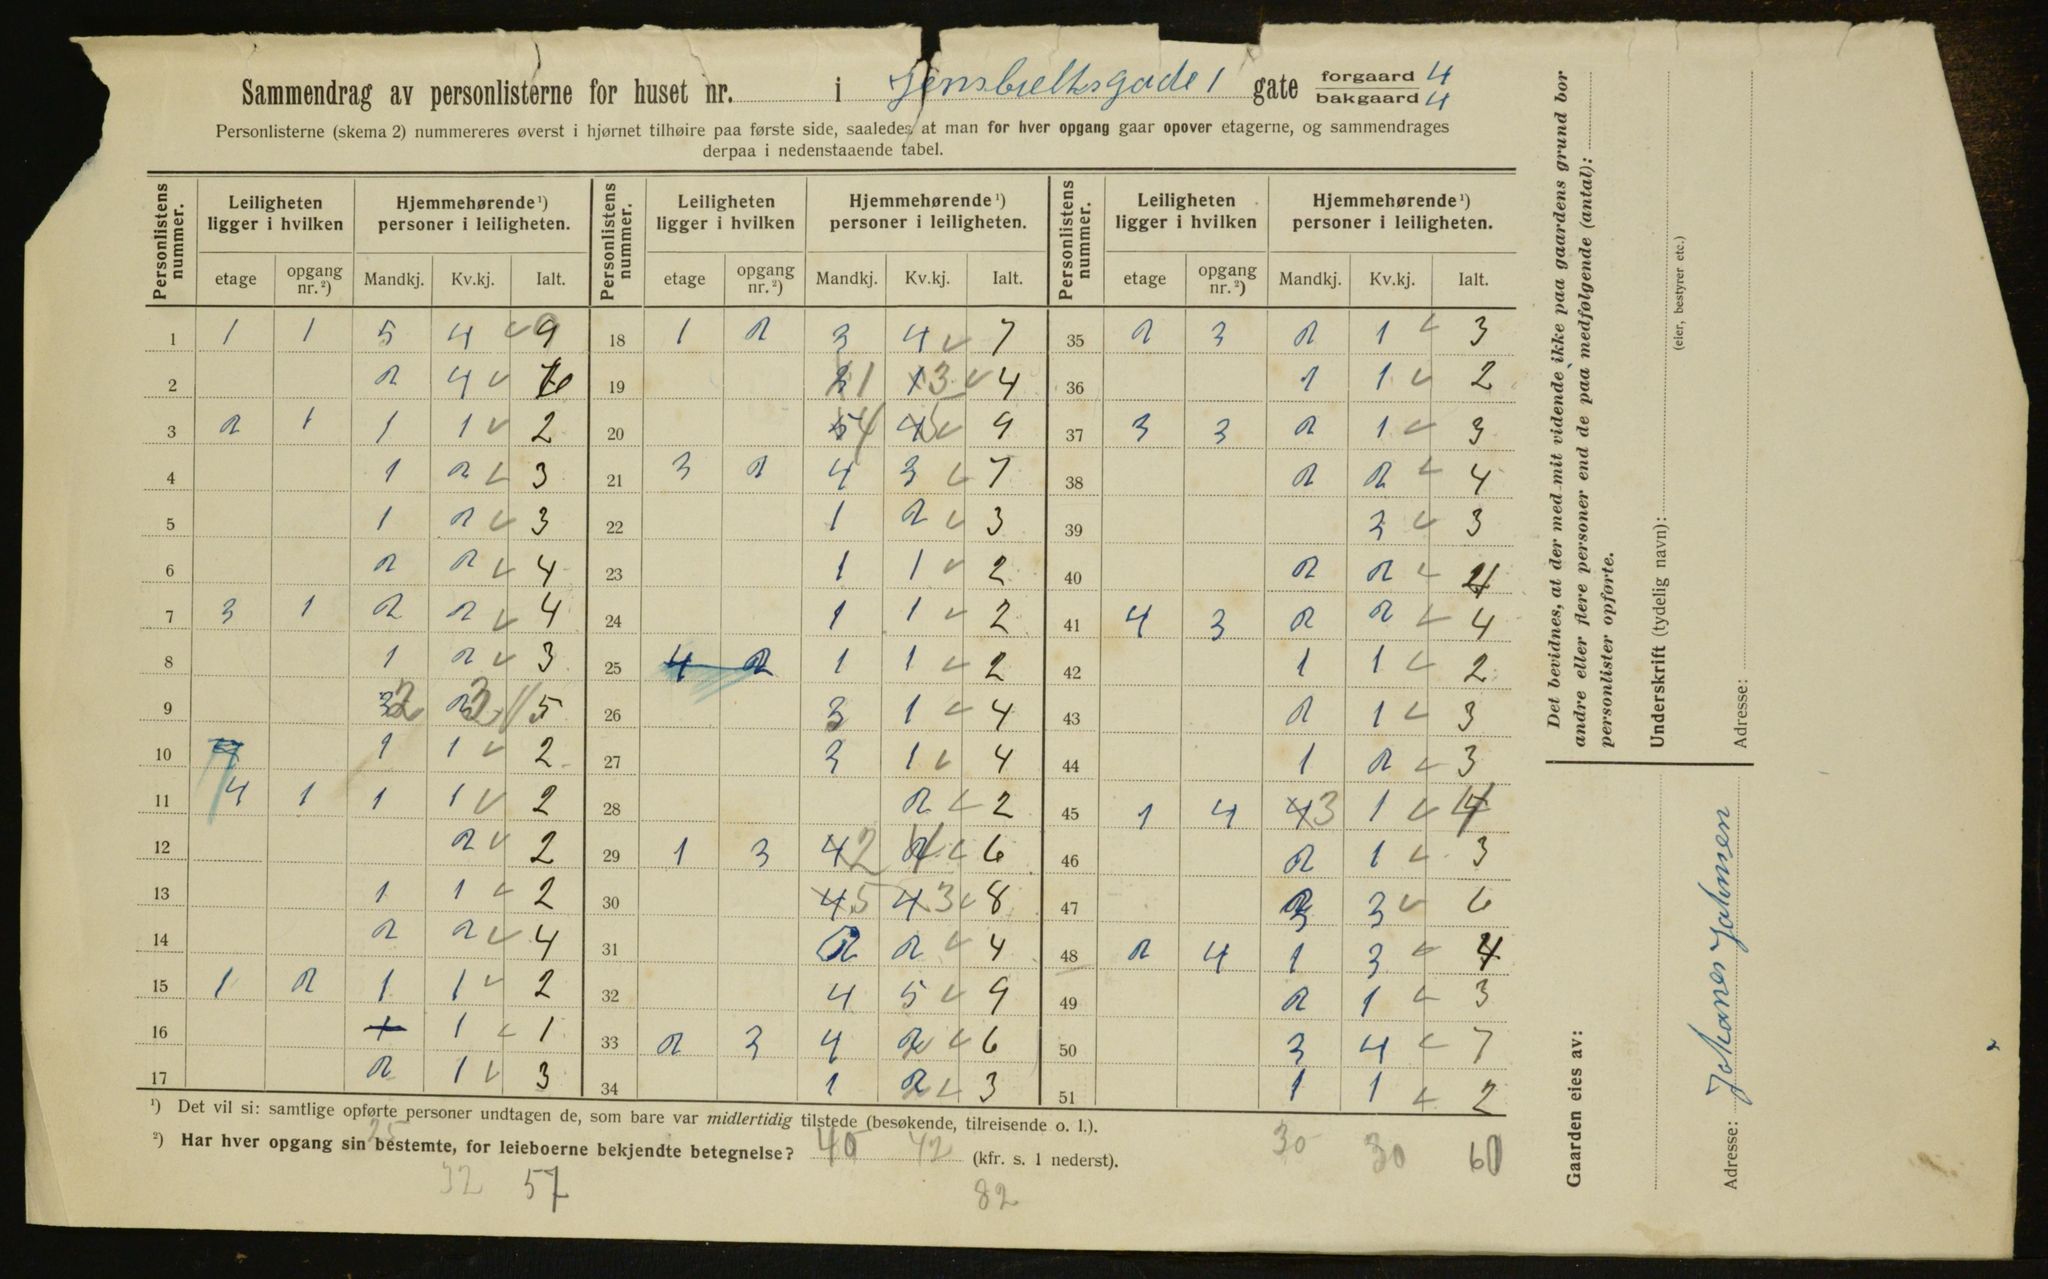 Sammendrag av personlisterne for huset nr. i Jensbielkesgade 1 gate forgaard 4
bakgaard 4
Personlisterne (skema 2) nummereres øverst i hjørnet tilhøire paa første side, saaledes at man for hver opgang gaar opover etagerne, og sammendrages
derpaa i nedenstaaende tabel.
Personlistens nummer. Leiligheten ligger i hvilken Hjemmehørende ¹) personer i leiligheten. Personlistens nummer. Leiligheten ligger i hvilken Hjemmehørende ¹) personer i leiligheten. Personlistens nummer. Leiligheten ligger i hvilken Hjemmehørende ¹) personer i leiligheten.
etage opgang nr. ²) Mandkj. Kv.kj. Ialt. etage opgang nr. ²) Mandkj. Kv.kj. Ialt. etage opgang nr. ²) Mandkj. Kv.kj. Ialt.
1 1 1 5 4 9 18 1 2 3 4 7 35 2 3 2 1 3
2 2 4 6 19 1 3 4 36 1 1 2
3 2 1 1 1 2 20 4 5 9 37 3 3 2 1 3
4 1 2 3 21 3 2 4 3 7 38 2 2 4
5 1 2 3 22 1 2 3 39 3 3
6 2 2 4 23 1 1 2 40 2 2 4
7 3 1 2 2 4 24 1 1 2 41 4 3 2 2 4
8 1 2 3 25 4 2 1 1 2 42 1 1 2
9 3 2 2 3 5 26 3 1 4 43 2 1 3
10 1 1 2 27 3 1 4 44 1 2 3
11 4 1 1 1 2 28 2 2 45 1 4 4 3 1 4
12 2 2 29 1 3 4 2 2 4 6 46 2 1 3
13 1 1 2 30 4 5 4 3 8 47 3 3 6
14 2 2 4 31 2 2 4 48 2 4 1 3 4
15 1 2 1 1 2 32 4 5 9 49 2 1 3
16 1 1 1 33 2 3 4 2 6 50 3 4 7
17 2 1 3 34 1 2 3 51 1 1 2
¹) Det vil si: samtlige opførte personer undtagen de, som bare var midlertidig tilstede (besøkende, tilreisende o. l.).
²) Har hver opgang sin bestemte, for leieboerne bekjendte betegnelse? (kfr. s. 1 nederst).
25 32 57
40 42 82
30 30 60
Det bevidnes, at der med mit vidende ikke paa gaardens grund bor
andre eller flere personer end de paa medfølgende (antal):
personlister opførte.
Underskrift (tydelig navn):
(eier, bestyrer etc.)
Adresse:
Gaarden eies av:
Johanes Johnsen
Adresse: